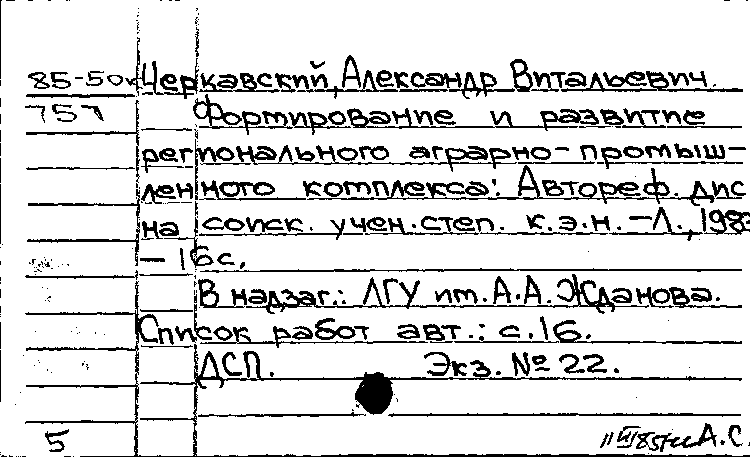 85-50к Черкавский, Александр Витальевич.
757 Формирование и развитие
регионального аграрно-промыш-
ленного комплекса: Автореф. дис
на соиск. учен. степ. к.э.н. -Л., 198
-16с.
В надзаг.: ЛГУ им. А.А. Жданова.
Список работ авт.: с.16.
ДСП. Экз. № 22.
5 А.С.